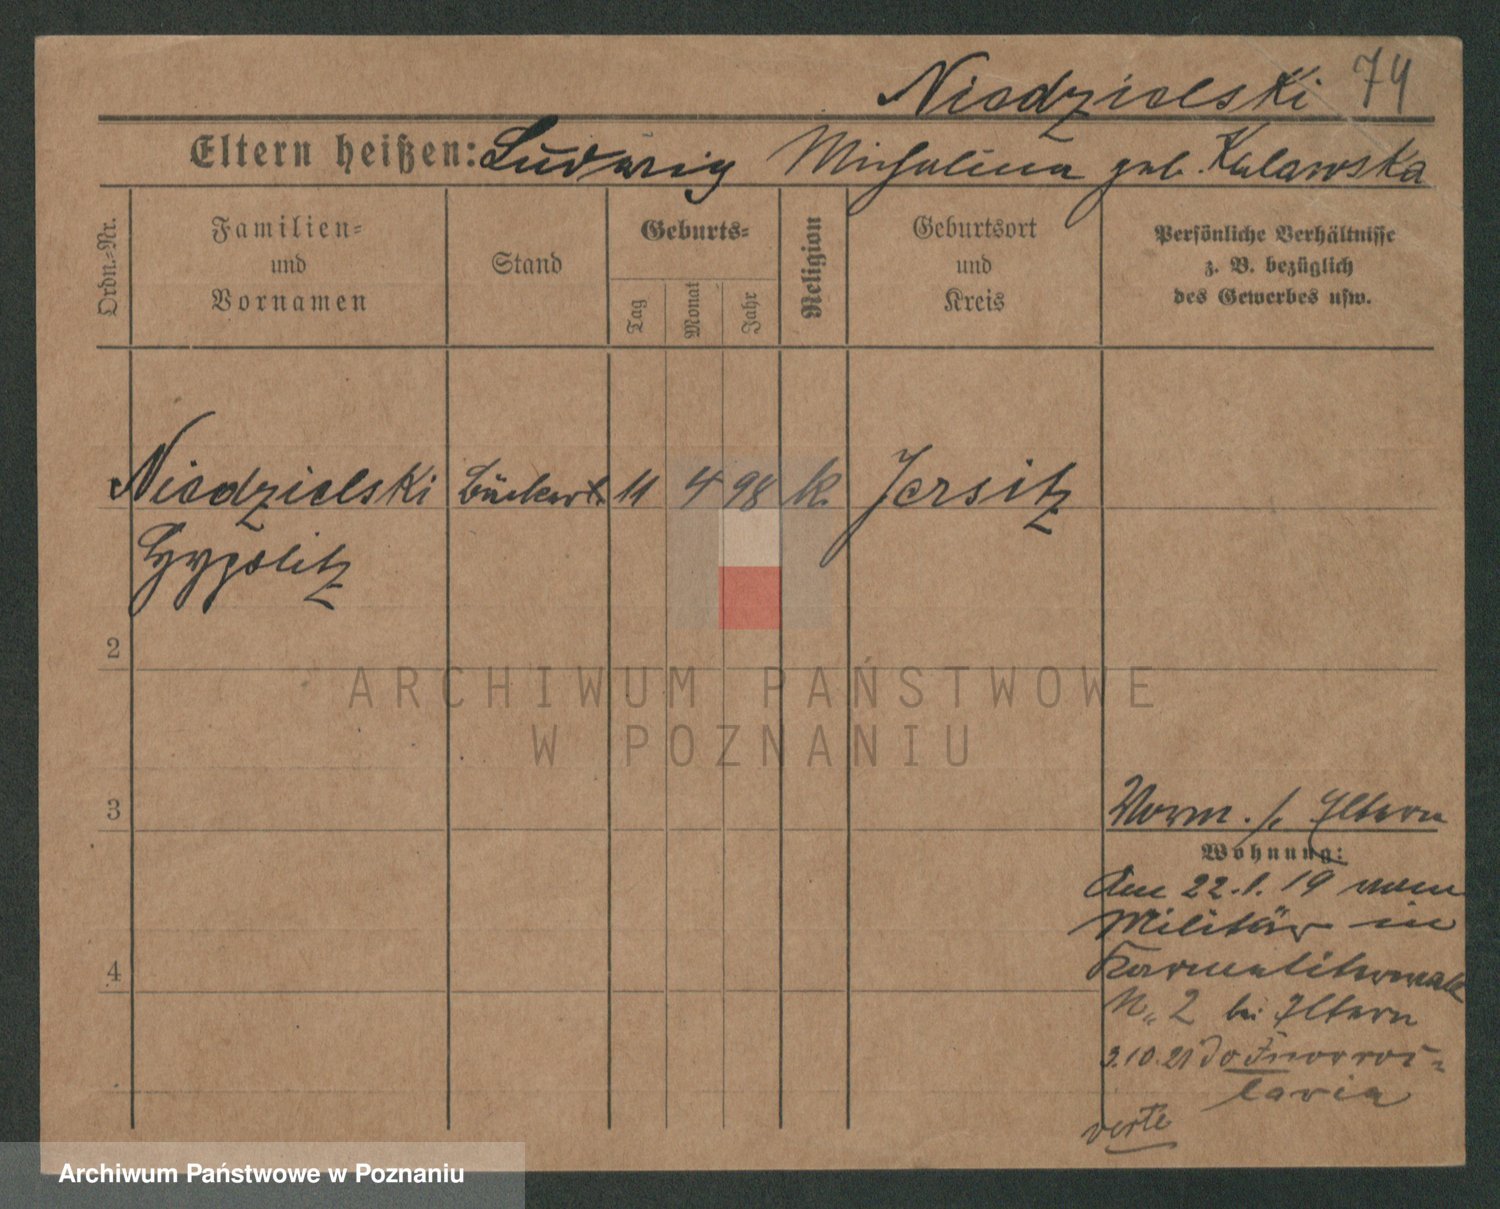 Niedzielski 74
Eltern heißen: Ludwig Michalina geb. Kulawska
Ordn.-Nr.
Familien- und Vornamen
Stand
Geburts-
Tag
Monat
Jahr
Religion
Geburtsort und Kreis
Persönliche Verhältnisse z. B. bezüglich des Gewerbes usw.
Niedzielski Bäcker 11 4 98 k. Jersitz
Hypolitz
2
3
4
Worm. s. Eltern
Wohnung:
Am 22.1.19 vom
Militär in
Karmeliterwall
N. 2 bei Eltern
3.10.21 do Inowroc-
lavia
verte
ARCHIWUM PAŃSTWOWE
W POZNANIU
Archiwum Państwowe w Poznaniu